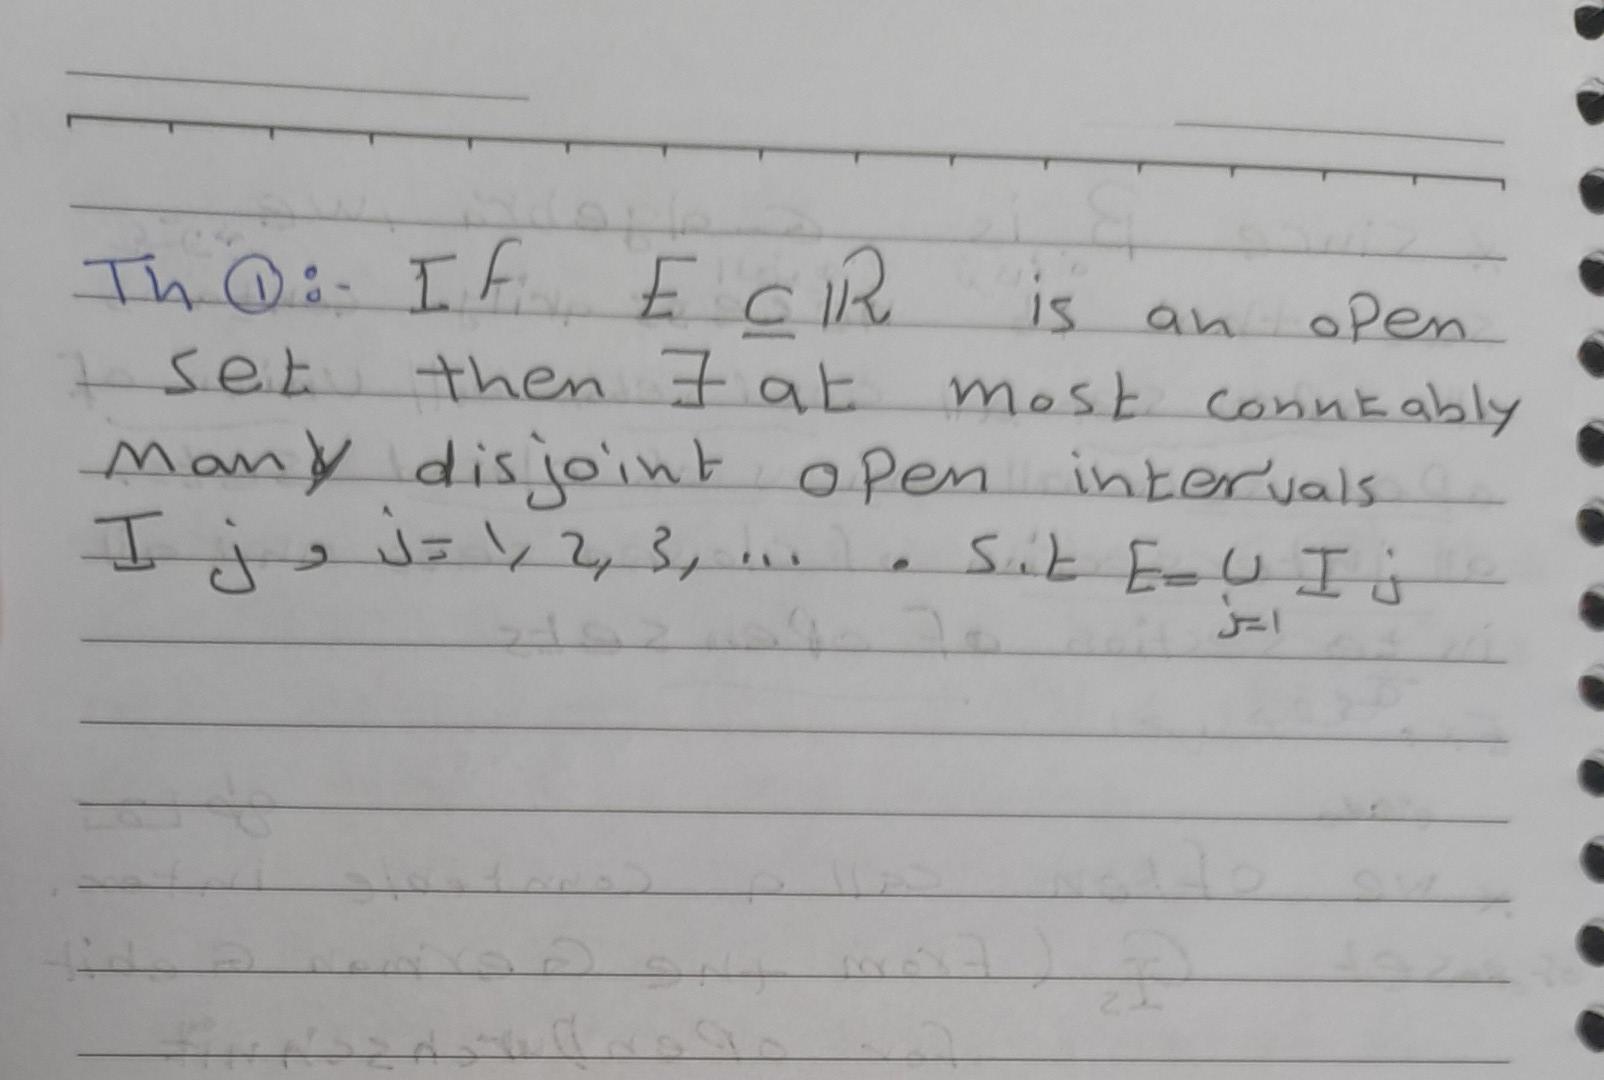 Th ①:- If E ⊆ ℝ is an open
set then ∃ at most countably
many disjoint open intervals
I j , j = 1, 2, 3, ... . S.t E = ∪ I j
j=1